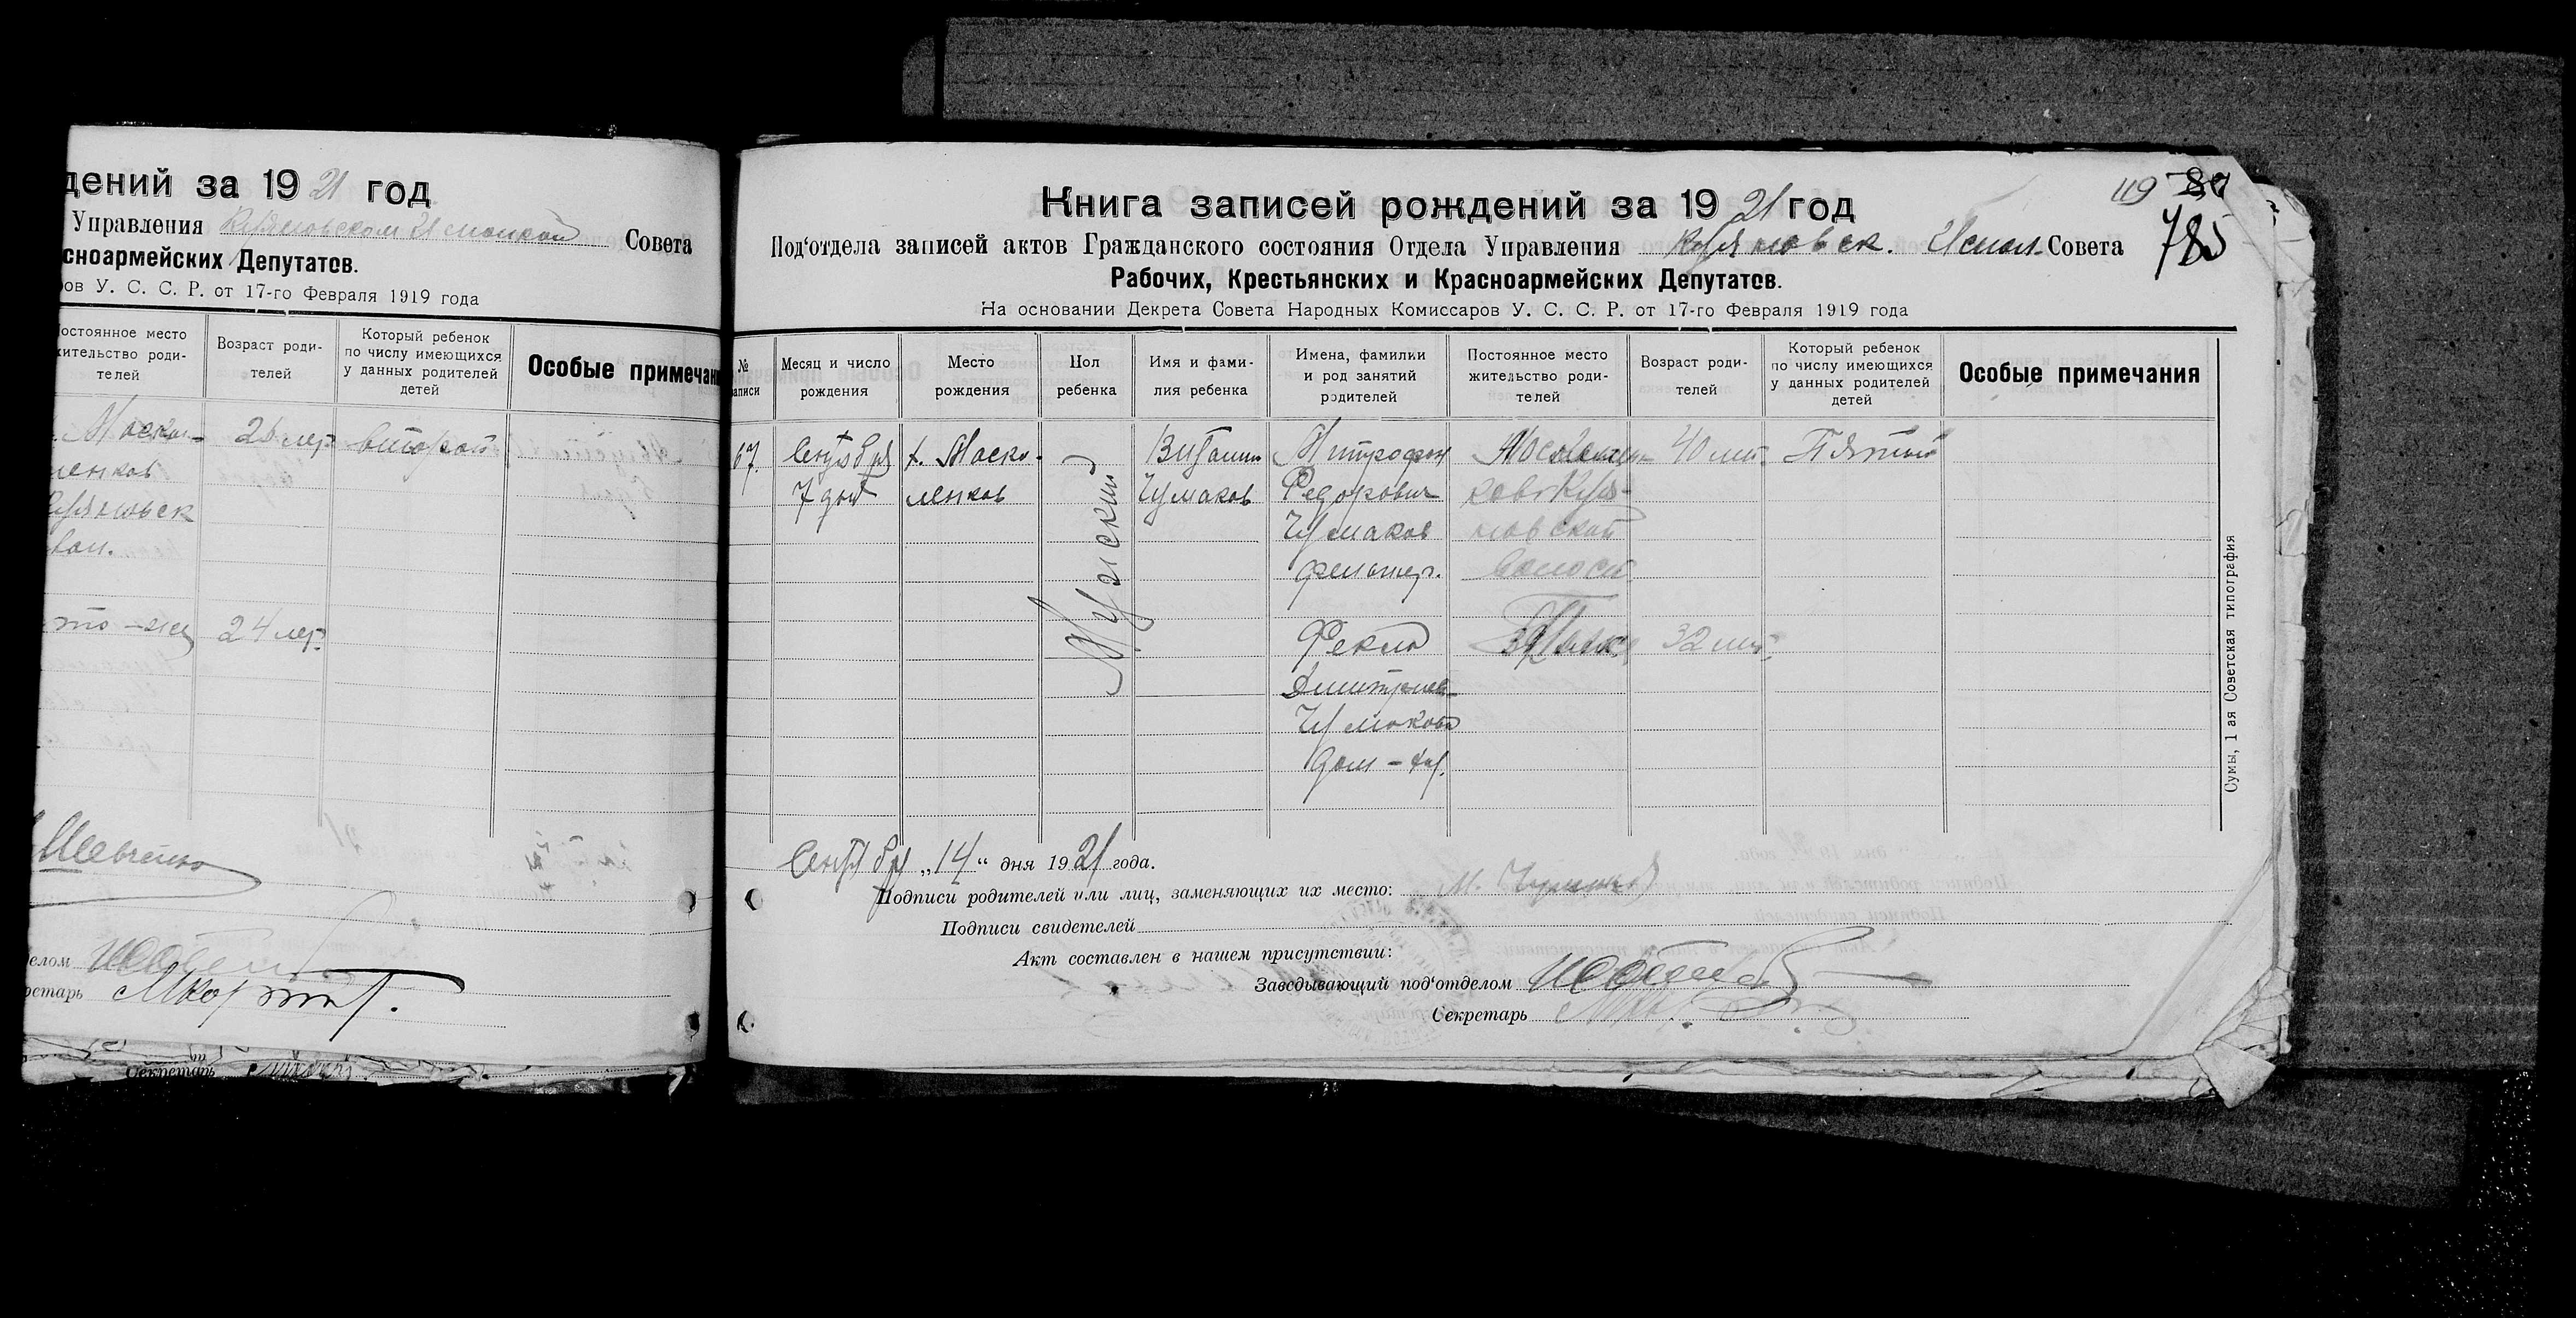 дений за 19 21 год
Управления Совета
сноармейских Депутатов.
ов У. С. С. Р. от 17-го Февраля 1919 года
остоянное место
жительство роди-
телей
Возраст роди-
телей
Который ребенок
по числу имеющихся
у данных родителей
детей
Особые примечан
Моско-
ленков
вол.
второй
24 лет
Шевченко
елом
ретарь
Секретарь
119 80
785
Книга записей рождений за 19 21 год
Под‘отдела записей актов Гражданского состояния Отдела Управления Совета
Рабочих, Крестьянских и Красноармейских Депутатов.
На основании Декрета Совета Народных Комиссаров У. С. С. Р. от 17-го Февраля 1919 года
№
записи
Месяц и число
рождения
Место
рождения
Пол
ребенка
Имя и фами-
лия ребенка
Имена, фамилии
и род занятий
родителей
Постоянное место
жительство роди-
телей
Возраст роди-
телей
Который ребенок
по числу имеющихся
у данных родителей
детей
Особые примечания
67.
Сентября
7 дня
х. Моско-
ленков
Мужской
Виталий
Чумаков
Митрофан
Федорович
Чумаков
фельдшер.
40 лет.
Пятый
Фекла
Дмитриев-
Чумакова
дом-хоз.
32 лет.
Сентября „14“ дня 1921 года.
Подписи родителей или лиц, заменяющих их место: М. Чумаков
Подписи свидетелей
Акт составлен в нашем присутствии:
Заведывающий под‘отделом
Секретарь
Сумы, 1 ая Советская типография